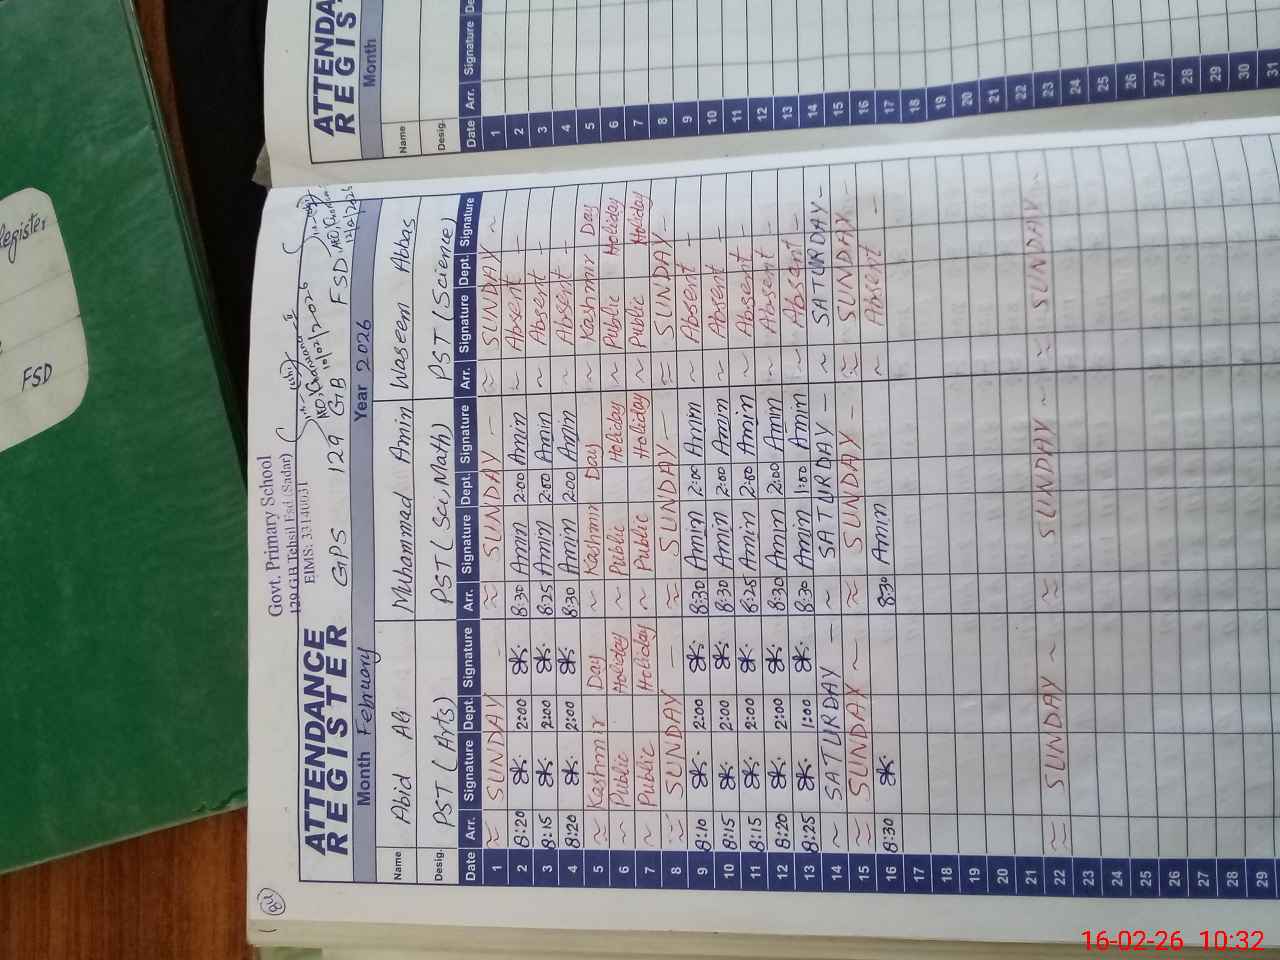 Register
FSD
Govt. Primary School
129 G.B Tehsil Fsd (Sadar)
EIMS: 33140031
ATTENDANCE
REGISTER
GPS 129 GB FSD
10/02/2026
12/02/2026
Month February Year 2026
Name Abid Ali Muhammad Amin Waseem Abbas
Desig. PST (Arts) PST (Sci, Math) PST (Science)
Date Arr. Signature Dept. Signature Arr. Signature Dept. Signature Arr. Signature Dept. Signature
1 SUNDAY SUNDAY SUNDAY
2 8:20 2:00 8:30 Amin 2:00 Amin Absent
3 8:15 2:00 8:25 Amin 2:00 Amin Absent
4 8:20 2:00 8:30 Amin 2:00 Amin Absent
5 Kashmir Day Kashmir Day Kashmir Day
6 Public Holiday Public Holiday Public Holiday
7 Public Holiday Public Holiday Public Holiday
8 SUNDAY SUNDAY SUNDAY
9 8:10 2:00 8:30 Amin 2:00 Amin Absent
10 8:15 2:00 8:30 Amin 2:00 Amin Absent
11 8:15 2:00 8:25 Amin 2:00 Amin Absent
12 8:20 2:00 8:30 Amin 2:00 Amin Absent
13 8:25 1:00 8:30 Amin 1:00 Amin Absent
14 SATURDAY SATURDAY SATURDAY
15 SUNDAY SUNDAY SUNDAY
16 8:30 8:30 Amin Absent
17
18
19
20
21
22 SUNDAY SUNDAY SUNDAY
23
24
25
26
27
28
29
ATTENDA
REGIST
Month
Name
Desig.
Date Arr. Signature De
1
2
3
4
5
6
7
8
9
10
11
12
13
14
15
16
17
18
19
20
21
22
23
24
25
26
27
28
29
30
31
16-02-26 10:32